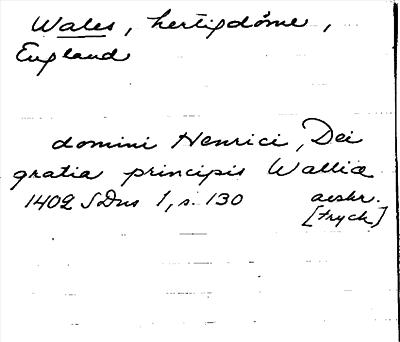 Wales, hertigdöme,
England
domini Henrici, Dei
gratia principis Walliæ
1402 SDns 1, s. 130 avskr.
[tryck]